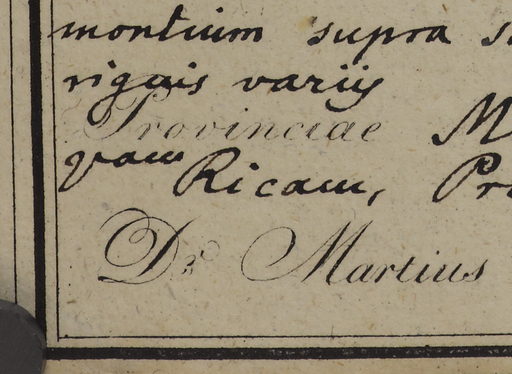 montium supra
riguis variis
Provinciae M
quam Ricam, Pr
Dr. Martius